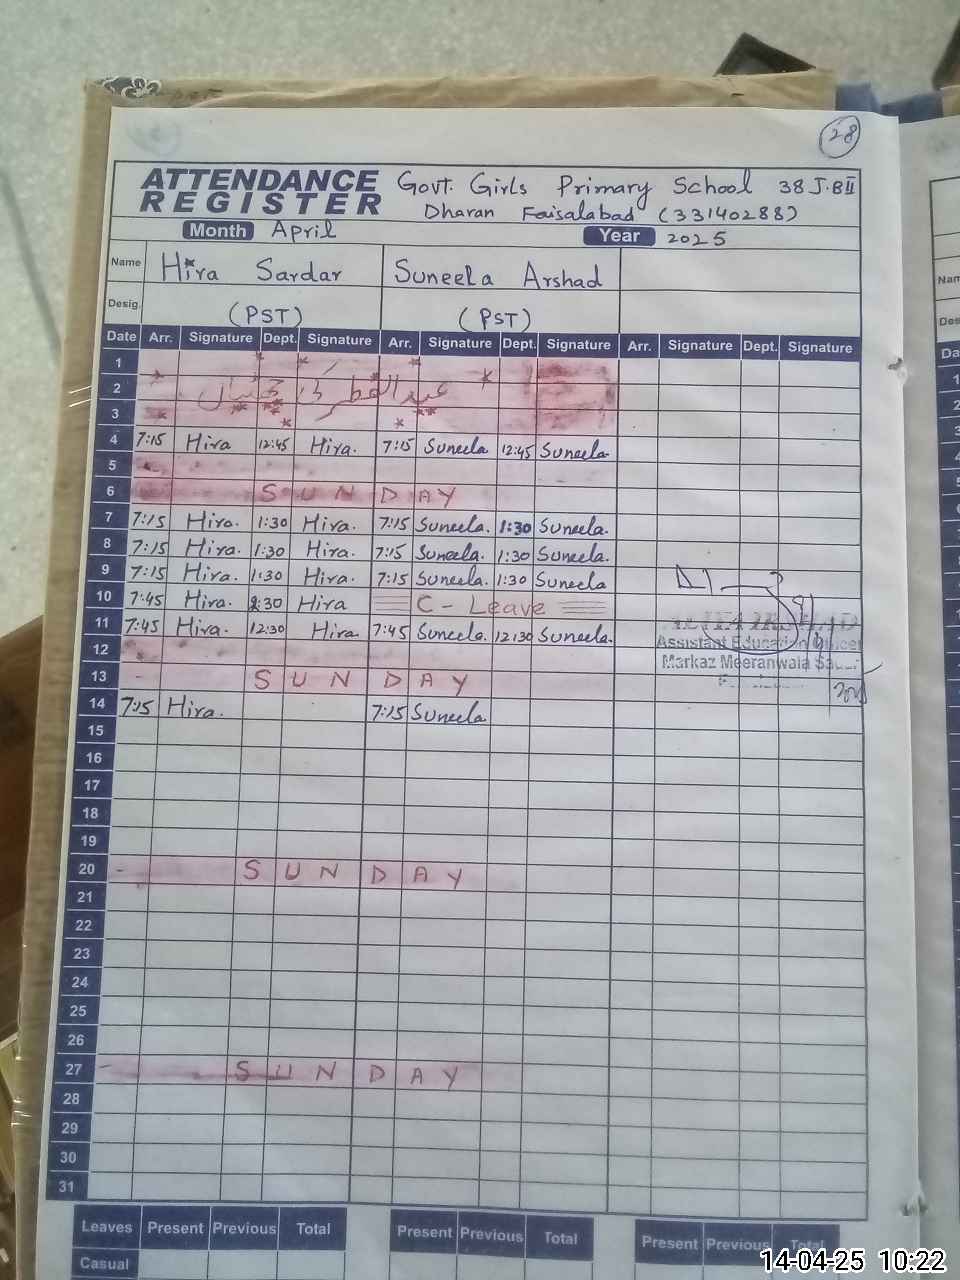 28
ATTENDANCE REGISTER
Govt. Girls Primary School 38 J.B II
Dharan Faisalabad (33140288)
Month April Year 2025
Name Hira Sardar Suneela Arshad
Desig. (PST) (PST)
Date Arr. Signature Dept. Signature Arr. Signature Dept. Signature Arr. Signature Dept. Signature
1
2 عیدالفطر کی چھٹیاں
3
4 7:15 Hira 12:45 Hira. 7:15 Suneela 12:45 Suneela
5
6 SUNDAY
7 7:15 Hira. 1:30 Hira. 7:15 Suneela. 1:30 Suneela.
8 7:15 Hira. 1:30 Hira. 7:15 Suneela. 1:30 Suneela.
9 7:15 Hira. 1:30 Hira. 7:15 Suneela. 1:30 Suneela
10 7:45 Hira. 2:30 Hira C - Leave
11 7:45 Hira. 12:30 Hira 7:45 Suneela. 12:30 Suneela.
Assistant Education Officer
12
Markaz Meeranwala
13 SUNDAY
14 7:15 Hira. 7:15 Suneela
15
16
17
18
19
20 SUNDAY
21
22
23
24
25
26
27 SUNDAY
28
29
30
31
Leaves Present Previous Total Present Previous Total Present Previous Total
Casual
14-04-25 10:22